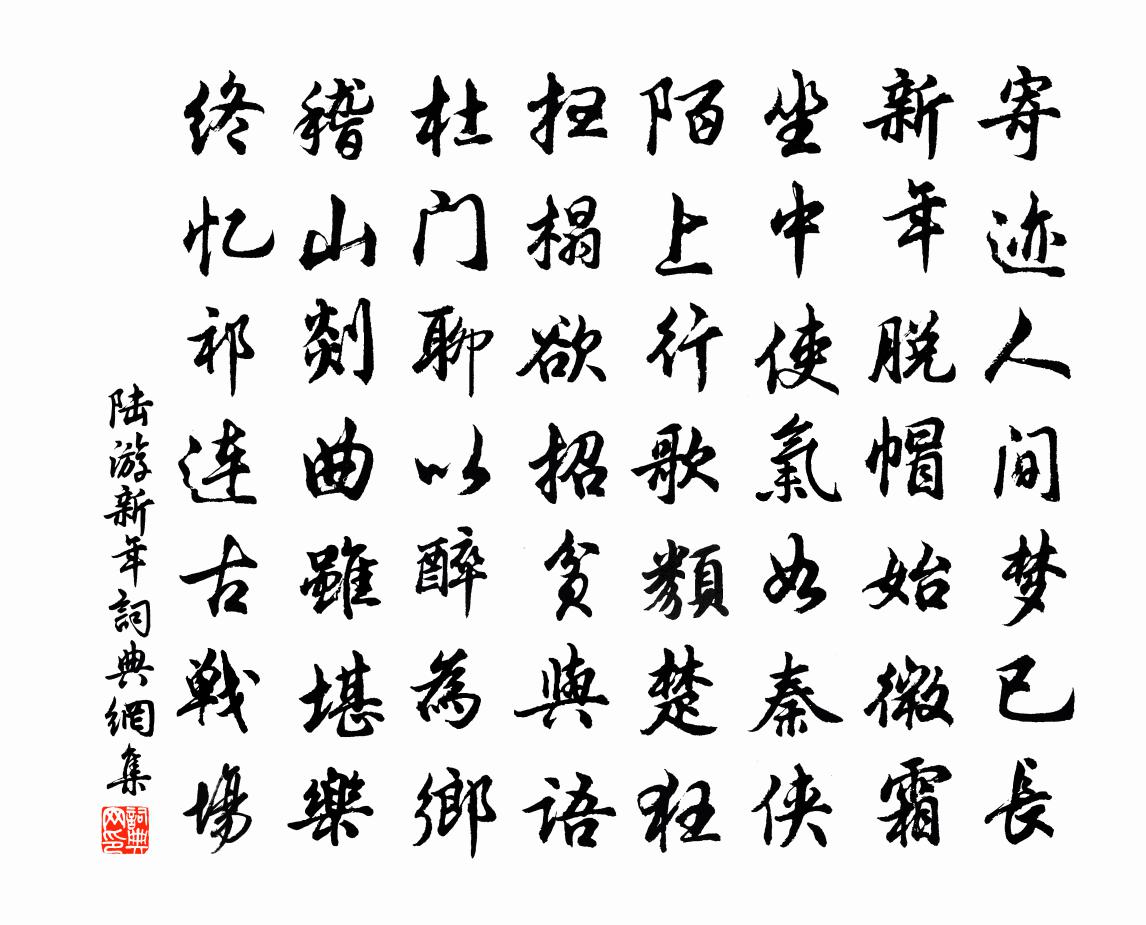 寄迹人间梦已長
新年脱帽始微霜
坐中使氣如秦俠
陌上行歌類楚狂
扫榻欲招貧與語
杜门聊以醉為鄉
稽山剡曲雖堪樂
终忆祁连古戰場
陆游新年詞典網集
詞典网印